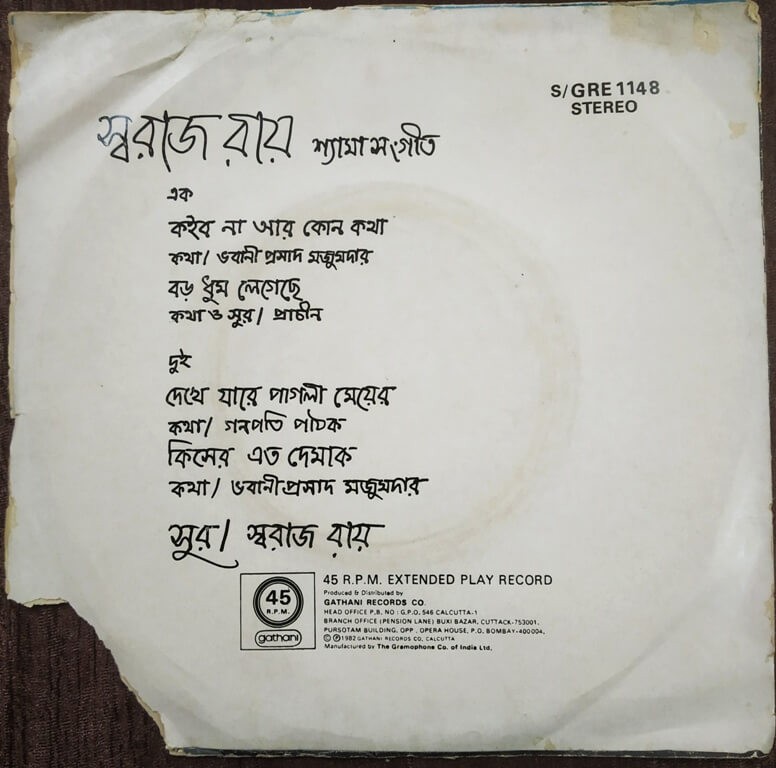 S/GRE 1148
STEREO
স্বরাজ রায় শ্যামাসংগীত
এক
কইব না আর কোন কথা
কথা/ ভবানী প্রসাদ মজুমদার
বড় ধুম লেগেছে
কথা ও সুর/ প্রাচীন
দুই
দেখে যারে পাগলী মেয়ের
কথা/ গনপতি পাঠক
কিসের এত দেমাক
কথা/ ভবানীপ্রসাদ মজুমদার
সুর/ স্বরাজ রায়
45
R.P.M.
gathani
45 R.P.M. EXTENDED PLAY RECORD
Produced & Distributed by
GATHANI RECORDS CO.
HEAD OFFICE P.B. NO : G.P.O. 546 CALCUTTA-1
BRANCH OFFICE (PENSION LANE) BUXI BAZAR, CUTTACK-753001.
PURSOTAM BUILDING, OPP. OPERA HOUSE, P.O. BOMBAY-400004.
© ℗ 1982 GATHANI RECORDS CO. CALCUTTA
Manufactured by The Gramophone Co. of India Ltd.